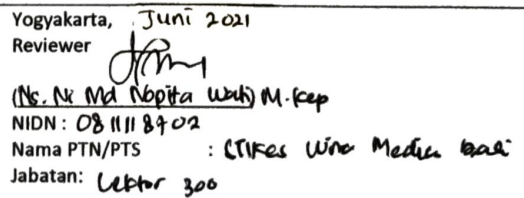 Yogyakarta, Juni 2021
Reviewer
(Ns. Ni Md Nopita Wati) M.Kep
NIDN : 0811118702
Nama PTN/PTS : STIKes Wira Medika Bali
Jabatan: Lektor 300